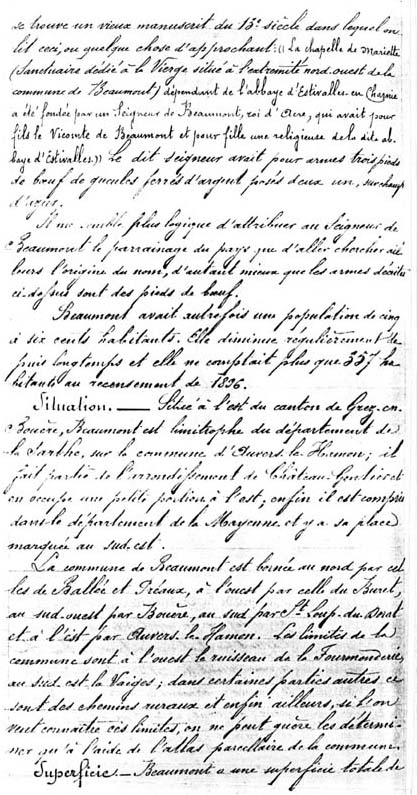 se trouve un vieux manuscrit du 13e siècle dans lequel on
lit ceci, ou quelque chose d'approchant: (( La chapelle de Mariette
(Sanctuaire dédié à la Vierge situé à l'extrémité nord-ouest de la
commune de Beaumont) dépendant de l'abbaye d'Estivalles-en Charnie
a été fondée par un Seigneur de Beaumont, roi d'Acre, qui avait pour
fils le Vicomte de Beaumont et pour fille une religieuse de la dite ab-
baye d'Estivalles.)) Le dit seigneur avait pour armes trois pieds
de bœuf de gueules ferrés d'argent posés deux un, sur champ
d'azur.
Il me semble plus logique d'attribuer au Seigneur de
Beaumont le parrainage du pays que d'aller chercher ail
leurs l'origine du nom, d'autant mieux que les armes décrites
ci-dessus sont des pieds de bœuf.
Beaumont avait autrefois une population de cinq
à six cents habitants. Elle diminue régulièrement de-
puis longtemps et elle ne comptait plus que 357 ha-
bitants au recensement de 1896.
Situation. — Située à l'est du canton de Grez-en-
Bouère, Beaumont est limitrophe du département de
la Sarthe, sur la commune d'Auvers-le-Hamon; il
fait partie de l'arrondissement de Château-Gontier et
en occupe une petite portion à l'est; enfin il est compris
dans le département de la Mayenne et y a sa place
marquée au sud-est.
La commune de Beaumont est bornée au nord par cel
les de Ballée et Préaux, à l'ouest par celle du Buret,
au sud-ouest par Bouère, au sud par St Loup-du-Dorat
et à l'est par Auvers-le-Hamon. Les limites de la
commune sont à l'ouest le ruisseau de la Fourmonderie,
au sud-est la Vaiges; dans certaines parties autres, ce
sont des chemins ruraux et enfin ailleurs, si l'on
veut connaître ces limites, on ne peut guère les détermi-
ner qu'à l'aide de l'atlas parcellaire de la commune.
Superficie. — Beaumont a une superficie totale de